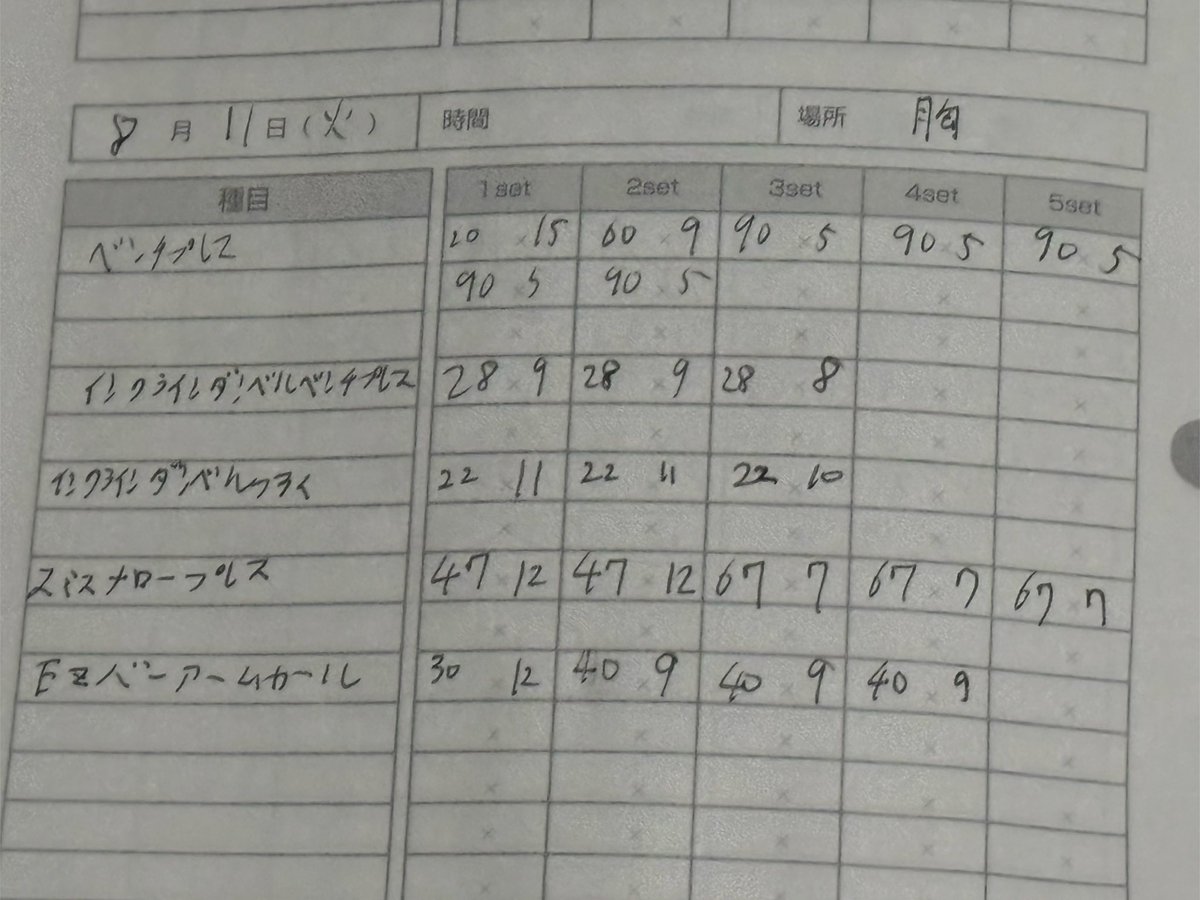 8月11日(火) 時間 場所 胸
種目 1set 2set 3set 4set 5set
ベンチプレス 20×15 60×9 90×5 90×5 90×5
90×5 90×5
インクラインダンベルベンチプレス 28×9 28×9 28×8
インクラインダンベルフライ 22×11 22×11 22×10
スミスナロープレス 47×12 47×12 67×7 67×7 67×7
EZバーアームカール 30×12 40×9 40×9 40×9